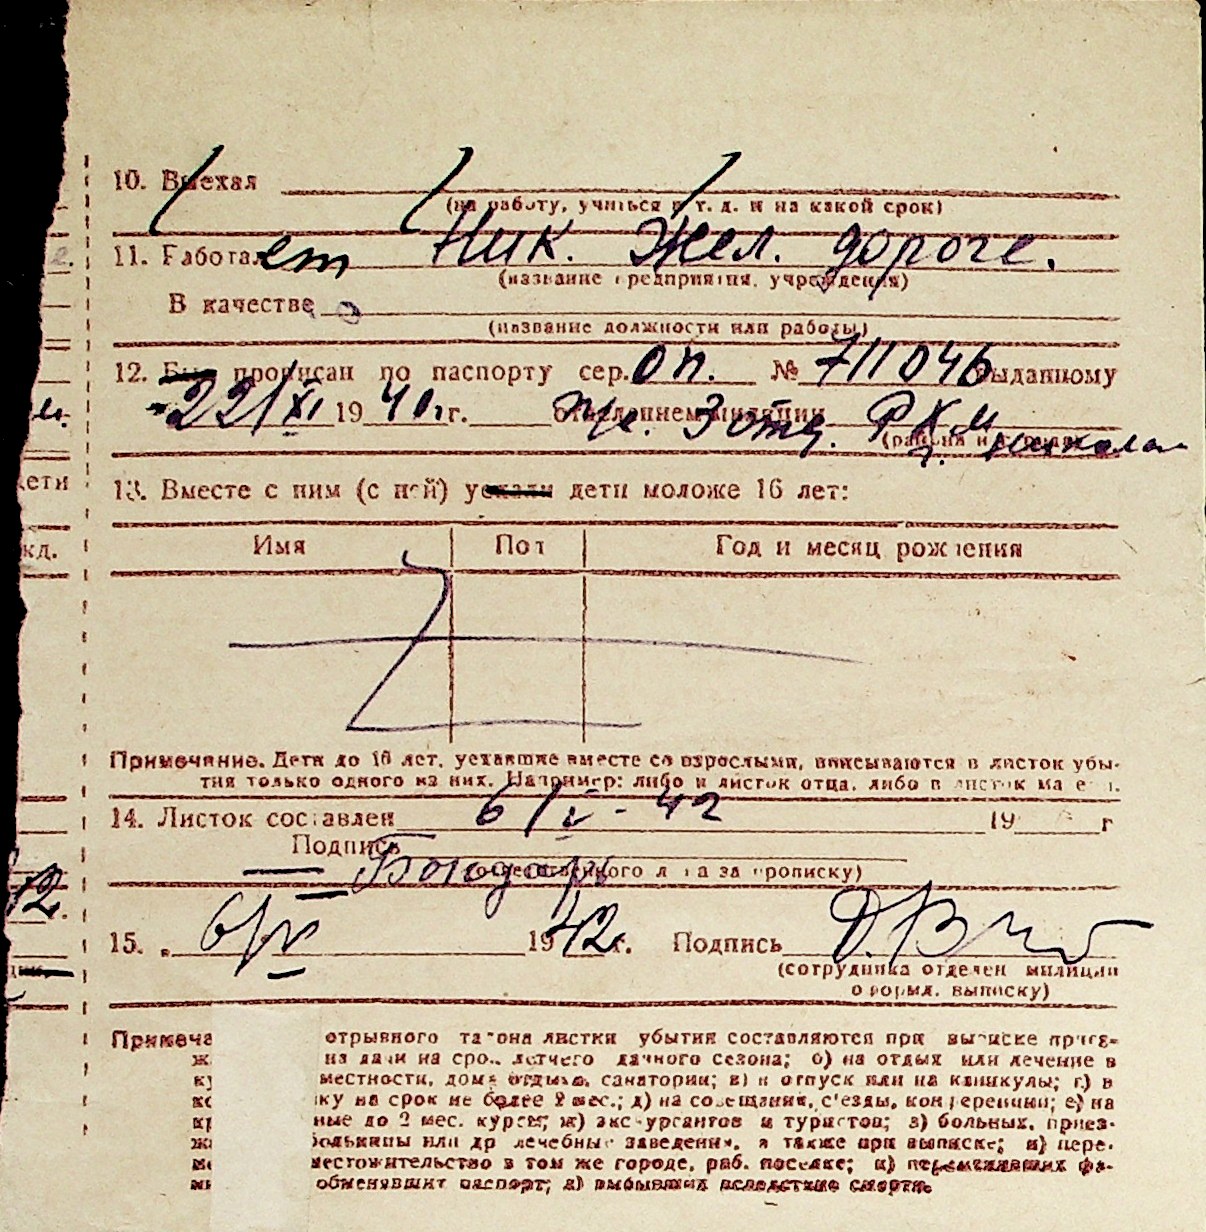 10. Выехал
(на работу, учиться и т. д. и на какой срок)
11. Работает Ник. Жел. дороге.
(название предприятия, учреждения)
В качестве
(название должности или работы)
12. Был прописан по паспорту сер. оп. № 711046 выданному
"22/XI 1940 г. отделением милиции 3 отд. РКМ
(района и города)
13. Вместе с ним (с ней) уехали дети моложе 16 лет:
Имя Пол Год и месяц рождения
Примечание. Дети до 16 лет, уехавшие вместе со взрослыми, вписываются в листок убы-
тия только одного из них. Например: либо в листок отца, либо в листок матери.
14. Листок составлен 6/V - 42 19 г
Подпись Бондарь
(ответственного лица за прописку)
15. „ 6/V 1942 г. Подпись
(сотрудника отделен. милиции
оформл. выписку)
Примеча отрывного талона листки убытия составляются при выписке приез-
ж на дачи на срок летнего дачного сезона; б) на отдых или лечение в
ку местности, дома отдыха, санатории; в) в отпуск или на каникулы; г) в
ко ку на срок не более 2 мес.; д) на совещания, с'езды, конференции; е) на
кр ные до 2 мес. курсы; ж) экскурсантов и туристов; з) больных, приез-
ж больницы или др лечебные заведения, а также при выписке; и) пере-
ме местожительство в том же городе, раб. поселке; к) переменивших фа-
ми обменявших паспорт; л) выбывших вследствие смерти.
ети
кд.
12.